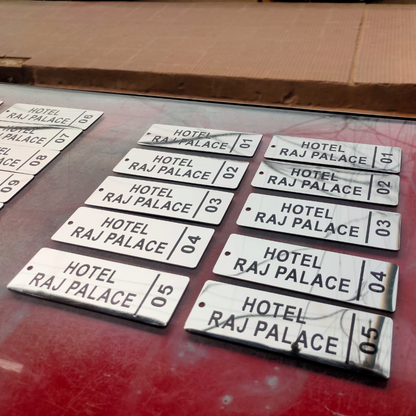 HOTEL
RAJ PALACE 06
HOTEL
RAJ PALACE 07
HOTEL
PALACE 08
PALACE 09
HOTEL
RAJ PALACE 01
HOTEL
RAJ PALACE 02
HOTEL
RAJ PALACE 03
HOTEL
RAJ PALACE 04
HOTEL
RAJ PALACE 05
HOTEL
RAJ PALACE 01
HOTEL
RAJ PALACE 02
HOTEL
RAJ PALACE 03
HOTEL
RAJ PALACE 04
HOTEL
RAJ PALACE 05